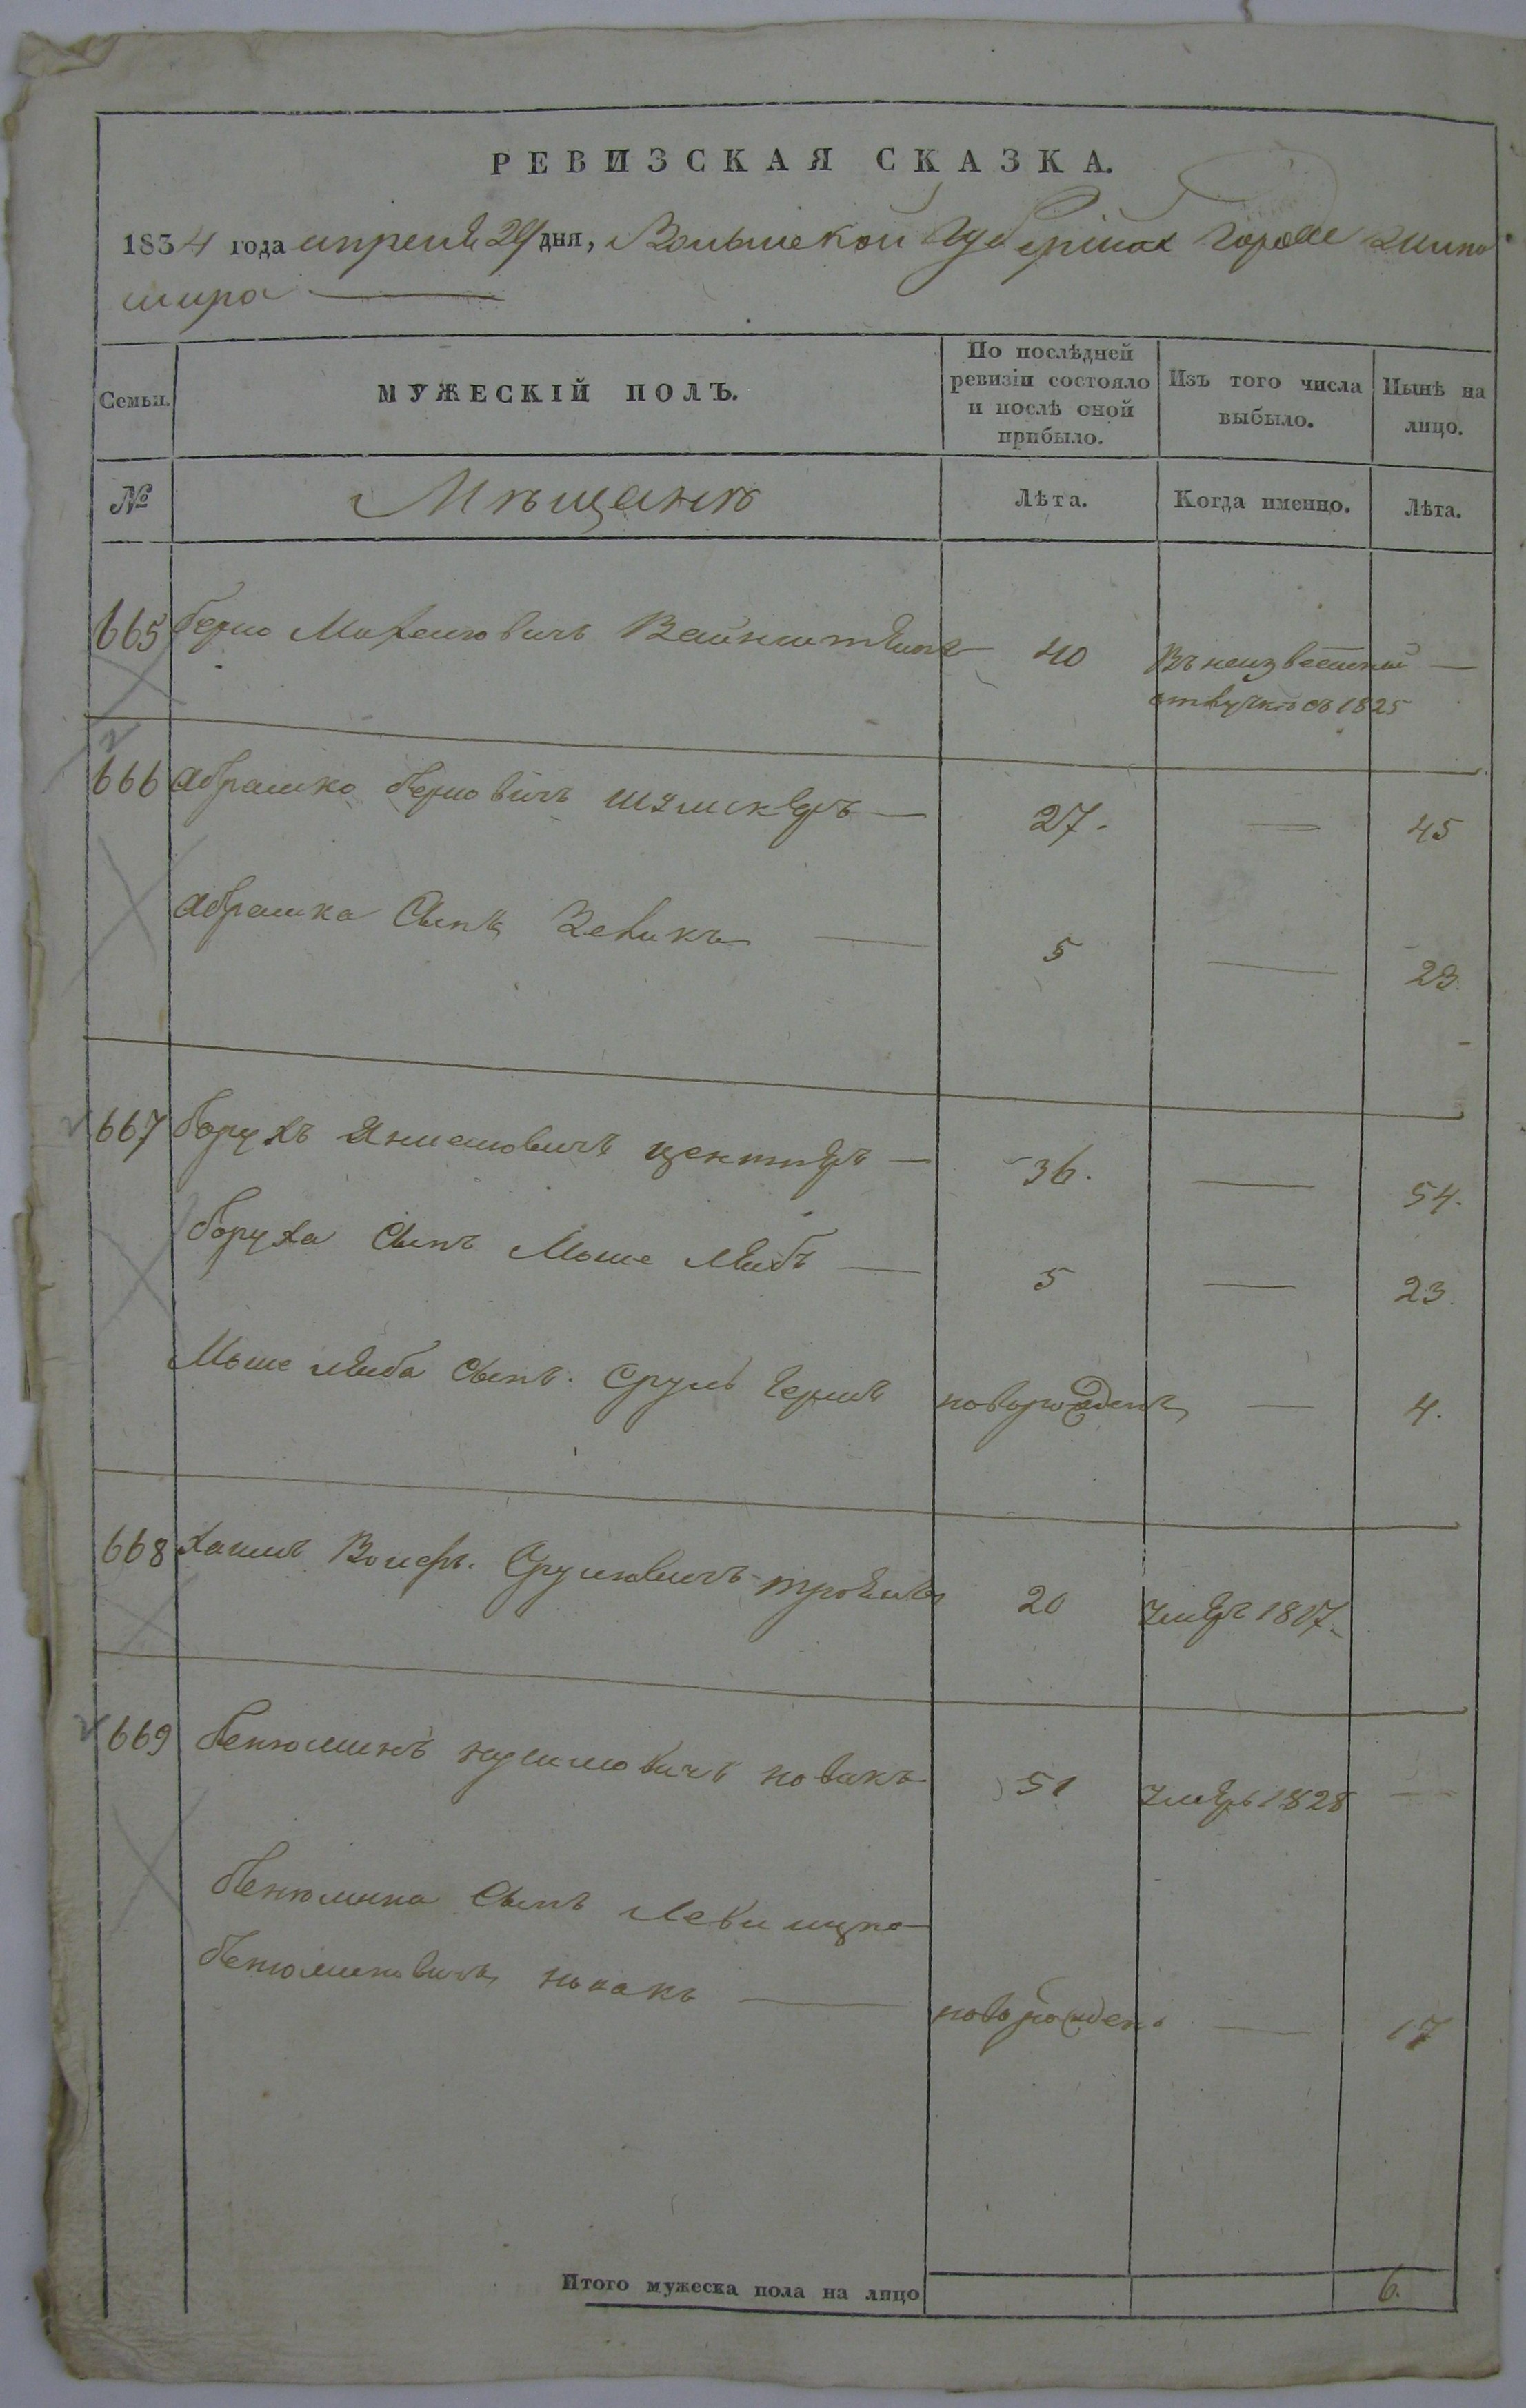 РЕВИЗСКАЯ СКАЗКА.
1834 года апреля 24 дня, Волынской Губернiи Города Жито
мира
Семьи.
МУЖЕСКІЙ ПОЛЪ.
По послѣдней ревизіи состояло и послѣ оной прибыло.
Изъ того числа выбыло.
Нынѣ на лицо.
№
Мѣщанѣ
Лѣта.
Когда именно.
Лѣта.
665 Берко Вайнштейнъ 40 Въ неизвестной —
отлучкѣ съ 1825
666 Абрамко Берковичъ — 27. — 45
Абрамка Сынъ Зеликъ — 5 — 23.
667 Борухъ Янкелiовичъ — 36. — 54.
Боруха Сынъ Мошко Лейбъ — 5 — 23.
Мошко Лейба Сынъ. Сруль Гершъ новорожденъ — 4.
668 Хаимъ Волфъ. Срулiовичъ 20 умеръ 1817.
669 Бенюминъ новакъ 51 умеръ 1828 —
Бенюмина Сынъ Леви ицко
Бенюминовичъ новакъ — новорожденъ — 17
Итого мужеска пола на лицо 6.